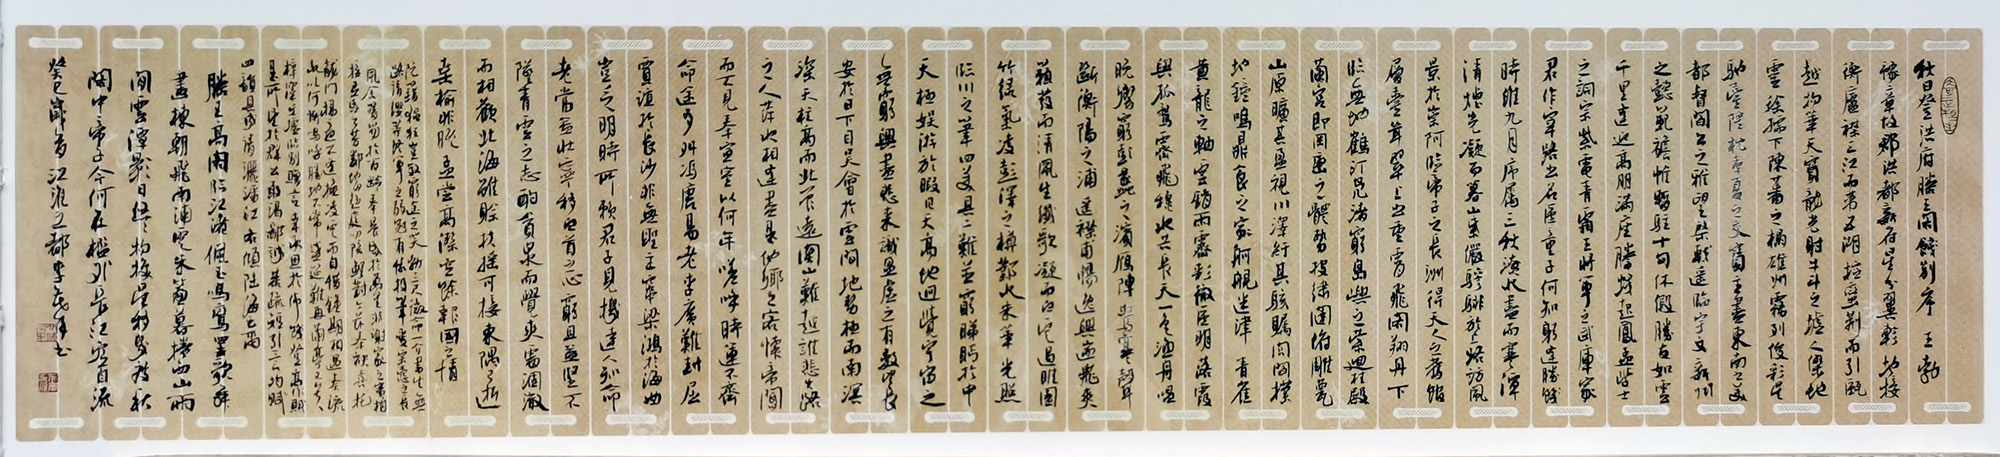 秋日登洪府滕王閣餞別序 王勃
豫章故郡洪都新府星分翼軫地接
衡廬襟三江而帶五湖控蠻荆而引甌
越物華天寶龍光射牛斗之墟人傑地
靈徐孺下陳蕃之榻雄州霧列俊彩星
馳臺隍枕夷夏之交賓主盡東南之美
都督閻公之雅望棨戟遙臨宇文新州
之懿範襜帷暫駐十旬休假勝友如雲
千里逢迎高朋滿座騰蛟起鳳孟學士
之詞宗紫電青霜王將軍之武庫家
君作宰路出名區童子何知躬逢勝餞
時維九月序屬三秋潦水盡而寒潭
清煙光凝而暮山紫儼驂騑於上路訪風
景於崇阿臨帝子之長洲得天人之舊館
層臺聳翠上出重霄飛閣翔丹下
臨無地鶴汀鳧渚窮島嶼之縈迴桂殿
蘭宮即岡巒之體勢披繡闥俯雕甍
山原曠其盈視川澤紆其駭矚閭閻撲
地鐘鳴鼎食之家舸艦迷津青雀
黃龍之舳雲銷雨霽彩徹區明落霞
與孤鶩齊飛秋水共長天一色漁舟唱
晚響窮彭蠡之濱雁陣驚寒聲
斷衡陽之浦遙襟甫暢逸興遄飛爽
籟發而清風生纖歌凝而白雲遏睢園
竹綠氣凌彭澤之樽鄴水朱華光照
臨川之筆四美具二難並窮睇眄於中
天極娛游於暇日天高地迥覺宇宙之
無窮興盡悲來識盈虛之有數望長
安於日下目吳會於雲間地勢極而南溟
深天柱高而北辰遠關山難越誰悲失路
之人萍水相逢盡是他鄉之客懷帝閽
而不見奉宣室以何年嗟呼時運不齊
命途多舛馮唐易老李廣難封屈
賈誼於長沙非無聖主竄梁鴻於海曲
豈乏明時所賴君子見機達人知命
老當益壯寧移白首之心窮且益堅不
墜青雲之志酌貪泉而覺爽處涸轍
而相歡北海雖賒扶搖可接東隅已逝
桑榆非晚孟嘗高潔空餘報國之情
阮籍猖狂豈效窮途之哭勃三尺微命一介書生無
路請纓等終軍之弱冠有懷投筆愛宗愨之長
風舍簪笏於百齡奉晨昏於萬里非謝家之寶樹
接孟氏之芳鄰他日趨庭叨陪鯉對今茲捧袂喜托
龍門楊意不逢撫凌雲而自惜鍾期相遇奏流
水以何慚嗚呼勝地不常盛筵難再蘭亭已矣
梓澤丘墟臨別贈言幸承恩於偉餞登高作賦
是所望於群公敢竭鄙誠恭疏短引一言均賦
四韻俱成請灑潘江各傾陸海云爾
滕王高閣臨江渚佩玉鳴鸞罷歌舞
畫棟朝飛南浦雲朱簾暮捲西山雨
閒雲潭影日悠悠物換星移幾度秋
閣中帝子今何在檻外長江空自流
癸巳歲 江淮之都李 書